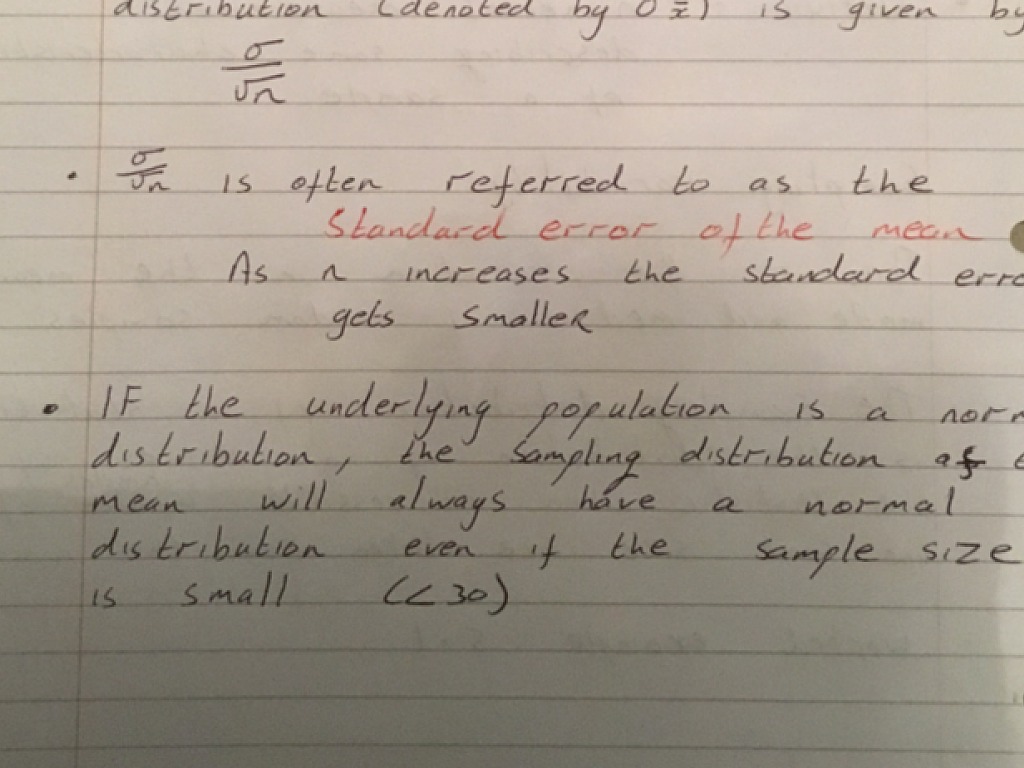 distribution (denoted by σx̄) is given by
σ/√n
• σ/√n is often referred to as the
Standard error of the mean
As n increases the standard erro
gets smaller
• IF the underlying population is a nor
distribution, the sampling distribution of
mean will always have a normal
distribution even if the sample size
is small (<30)